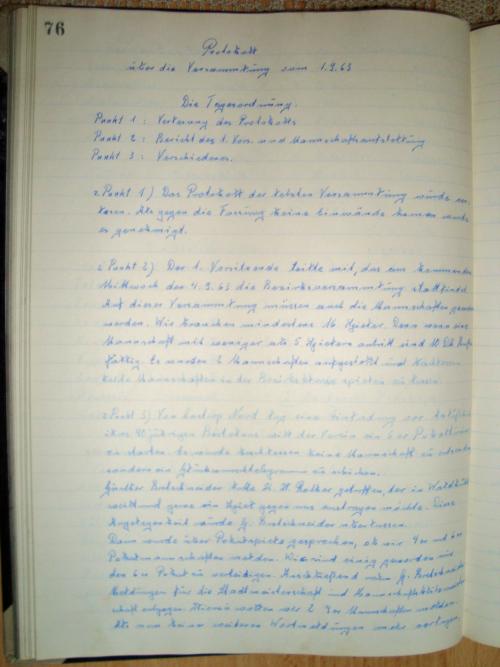 76
Protokoll
über die Versammlung vom 1.9.63
Die Tagesordnung.
Punkt 1 : Verlesung des Protokolls
Punkt 2 : Bericht des 1. Vors. und Mannschaftsaufstellung
Punkt 3 : Verschiedenes.
z. Punkt 1) Das Protokoll der letzten Versammlung wurde
lesen. Als gegen die Fassung keine Einwände kamen wurde
es genehmigt.
z. Punkt 2) Der 1. Vorsitzende teilte mit, das am kommenden
Mittwoch den 4.9.63 die Bezirksversammlung stattfindet.
Auf dieser Versammlung müssen auch die Mannschaften
werden. Wir brauchen mindestens 16 Spieler. Denn wenn eine
Mannschaft mit weniger als 5 Spielern antritt sind 10 DM
fällig. Es wurden 2 Mannschaften aufgestellt und
beide Mannschaften in der Bezirksklasse spielen zu lassen.
z. Punkt 3) Von Nord lag eine Einladung vor
ihres 40 jährigen Bestehens will der Verein ein 6 er Pokalturnier
zu starten. Es wurde beschlossen keine Mannschaft zu
sondern ein Glückwunschtelegramm zu schicken.
Günther Bretschneider hatte getroffen, der in
wohnt und gerne ein Spiel gegen uns austragen möchte. Diese
Angelegenheit wurde G. Bretschneider überlassen.
Dann wurde über Pokalspiele gesprochen, ob wir 4er und 6er
Pokalmannschaften melden. Wir sind einig geworden nur
den 6er Pokal zu verteidigen. Anschließend nahm G. Bretschneider
Meldungen für die Stadtmeisterschaft und
schaft entgegen. Hierin wollen wir 2 4er Mannschaften melden.
Als nun keine weiteren Wortmeldungen mehr vorlagen,